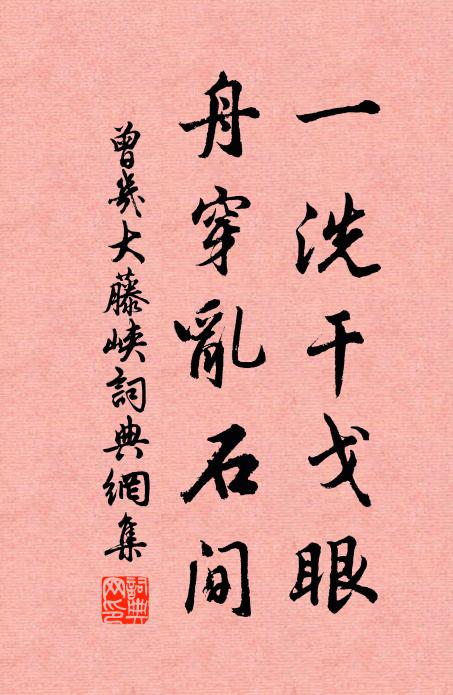 一洗干戈眼
舟穿亂石间
曾幾大藤峽詞典網集
詞典网印